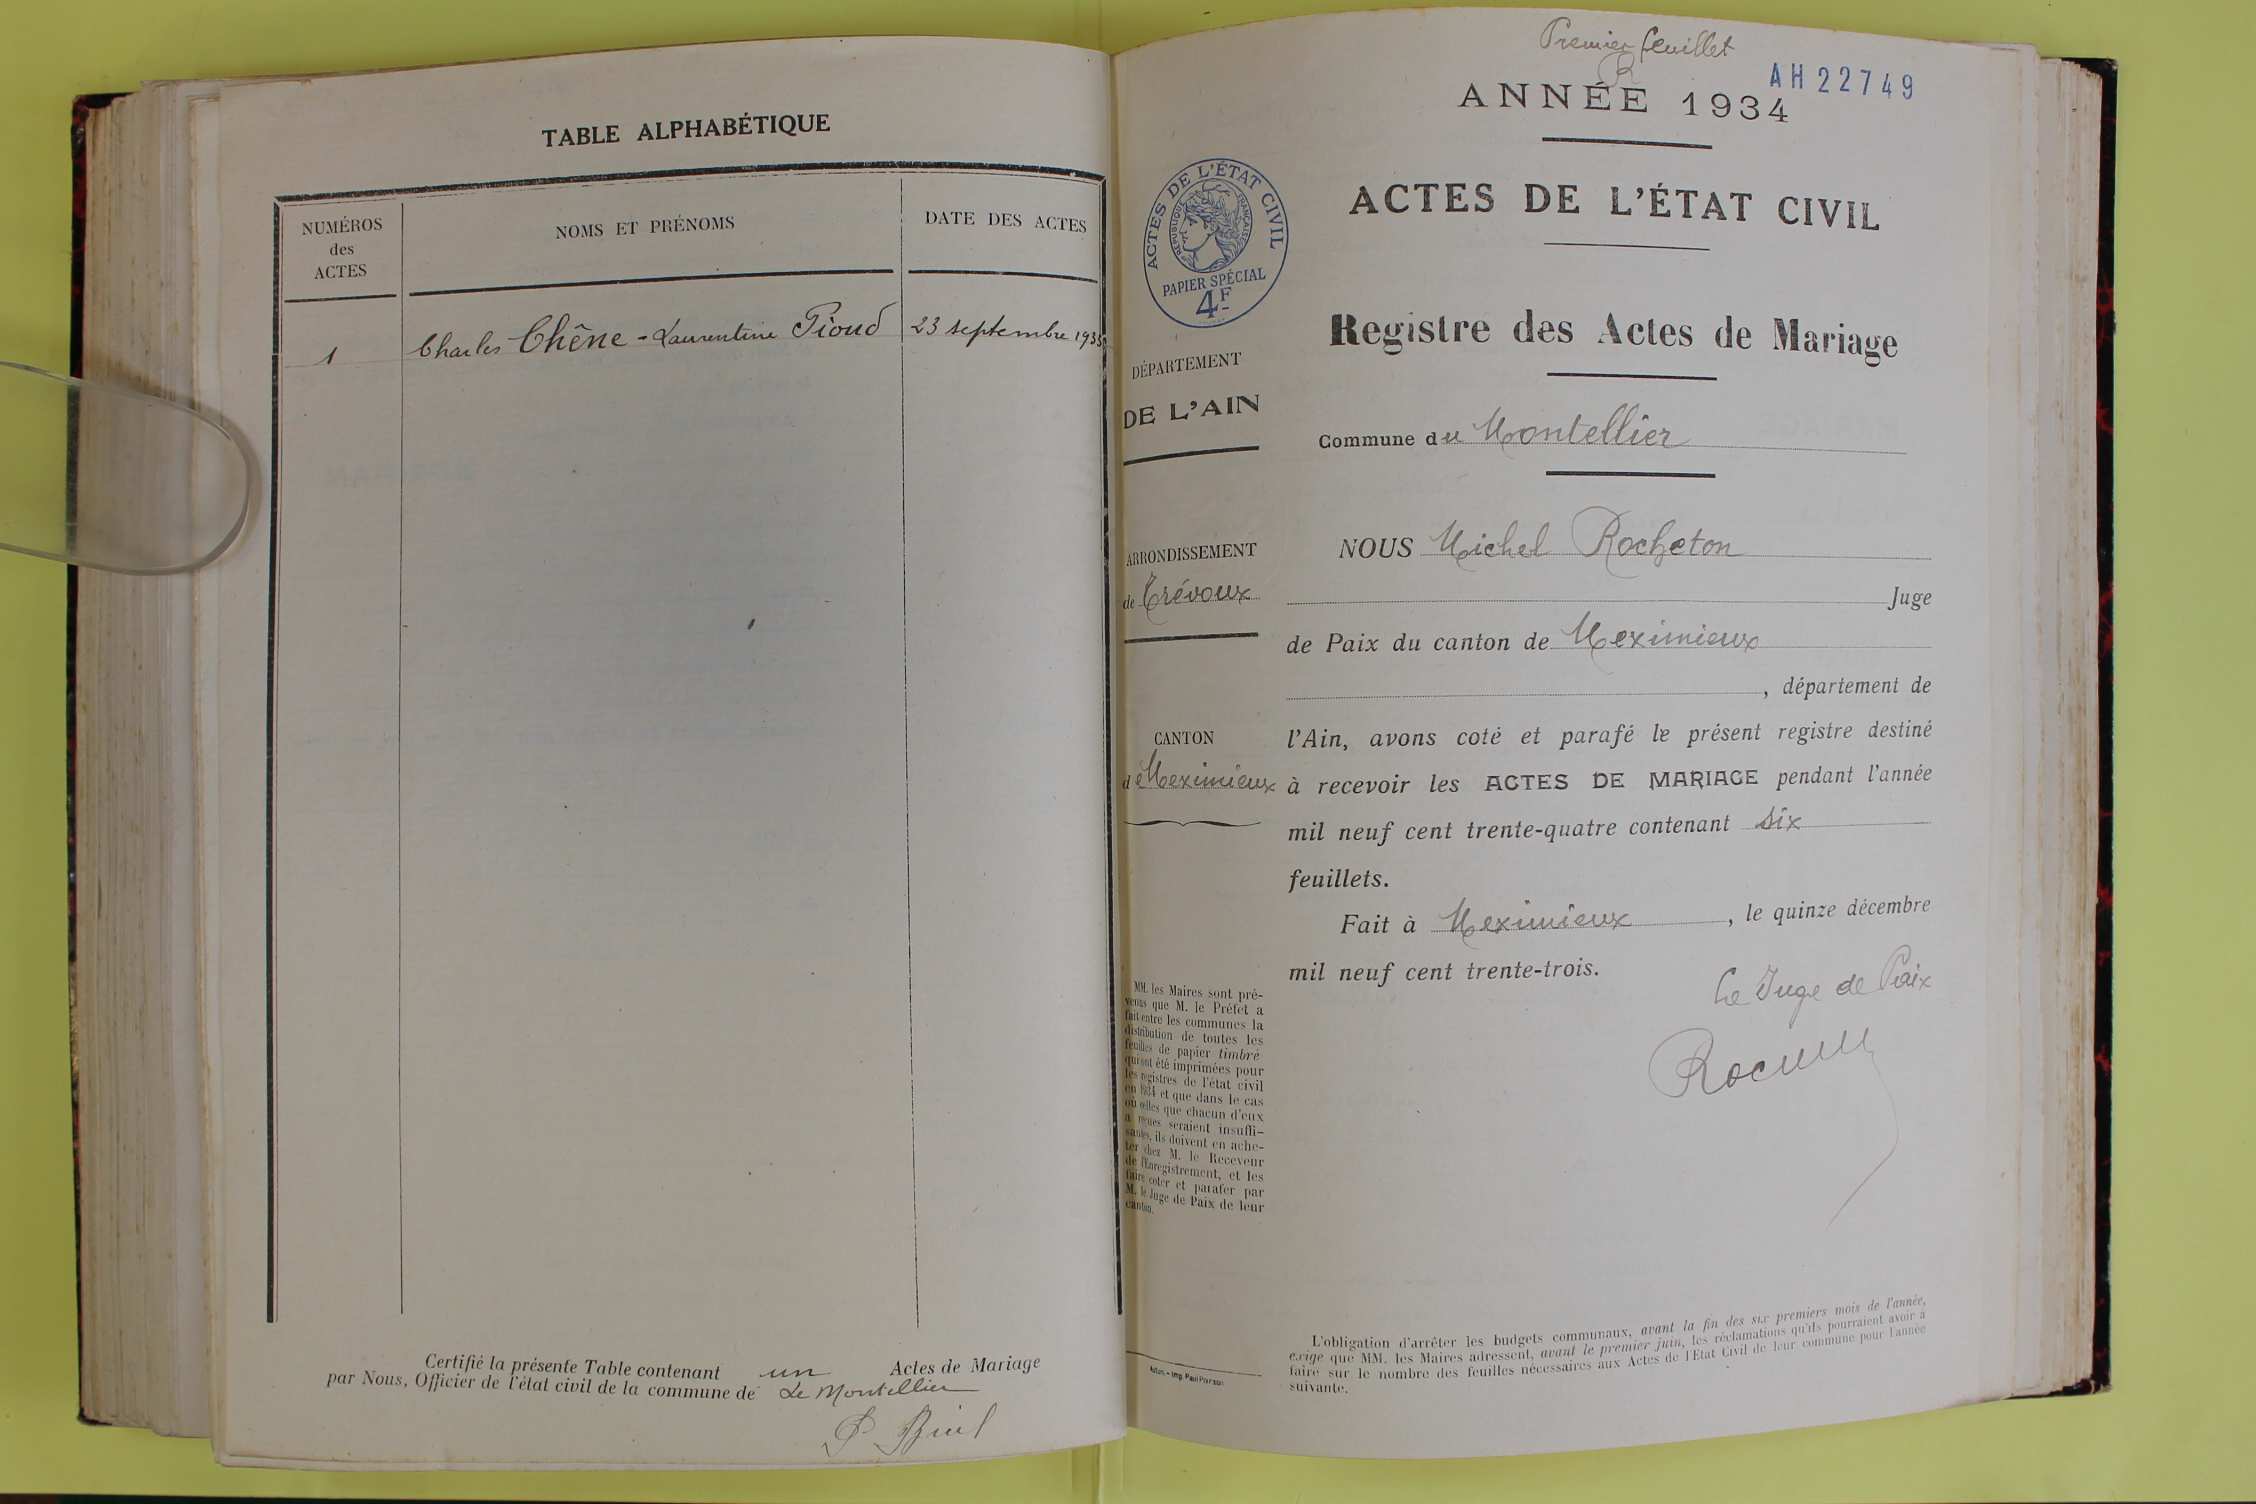 TABLE ALPHABÉTIQUE
NUMÉROS
des
ACTES
NOMS ET PRÉNOMS
DATE DES ACTES
1
Charles Chêne - Laurentine Pioud
23 septembre 1933
Certifié la présente Table contenant un Actes de Mariage
par Nous, Officier de l'état civil de la commune de Le Montellier
Premier feuillet
R
AH22749
ANNÉE 1934
ACTES DE L'ÉTAT CIVIL
RÉPUBLIQUE FRANÇAISE
PAPIER SPÉCIAL
4F
ACTES DE L'ÉTAT CIVIL
Registre des Actes de Mariage
DÉPARTEMENT
DE L'AIN
Commune du Montellier
ARRONDISSEMENT
de Trévoux
CANTON
de Meximieux
NOUS Michel Rocheton
Juge
de Paix du canton de Meximieux
, département de
l'Ain, avons coté et parafé le présent registre destiné
à recevoir les ACTES DE MARIAGE pendant l'année
mil neuf cent trente-quatre contenant six
feuillets.
Fait à Meximieux, le quinze décembre
mil neuf cent trente-trois.
Le Juge de Paix
MM. les Maires sont pré-
venus que M. le Préfet a
fait entre les communes la
distribution de toutes les
feuilles de papier timbré
qui ont été imprimées pour
les registres de l'état civil
en 1934 et que dans le cas
où celles que chacun d'eux
a reçues seraient insuffi-
santes, ils doivent en ache-
ter chez M. le Receveur
de l'Enregistrement, et les
faire coter et parafer par
M. le Juge de Paix de leur
canton.
L'obligation d'arrêter les budgets communaux, avant la fin des six premiers mois de l'année,
exige que MM. les Maires adressent, avant le premier juin, les réclamations qu'ils pourraient avoir à
faire sur le nombre des feuilles nécessaires aux Actes de l'État Civil de leur commune pour l'année
suivante.